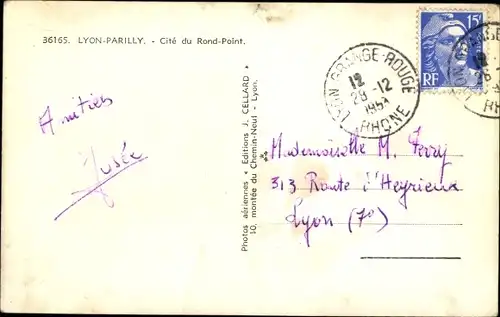 36165. LYON-PARILLY. - Cité du Rond-Point.
Amitiés
Josée
Photos aériennes • Editions J. CELLARD •
10, montée du Chemin-Neuf - Lyon.
LYON GRANGE-ROUGE
12
28-12
1954
RHONE
15F
RF
Mademoiselle M. Ferry
313 Route d'Heyrieux
Lyon (7º)